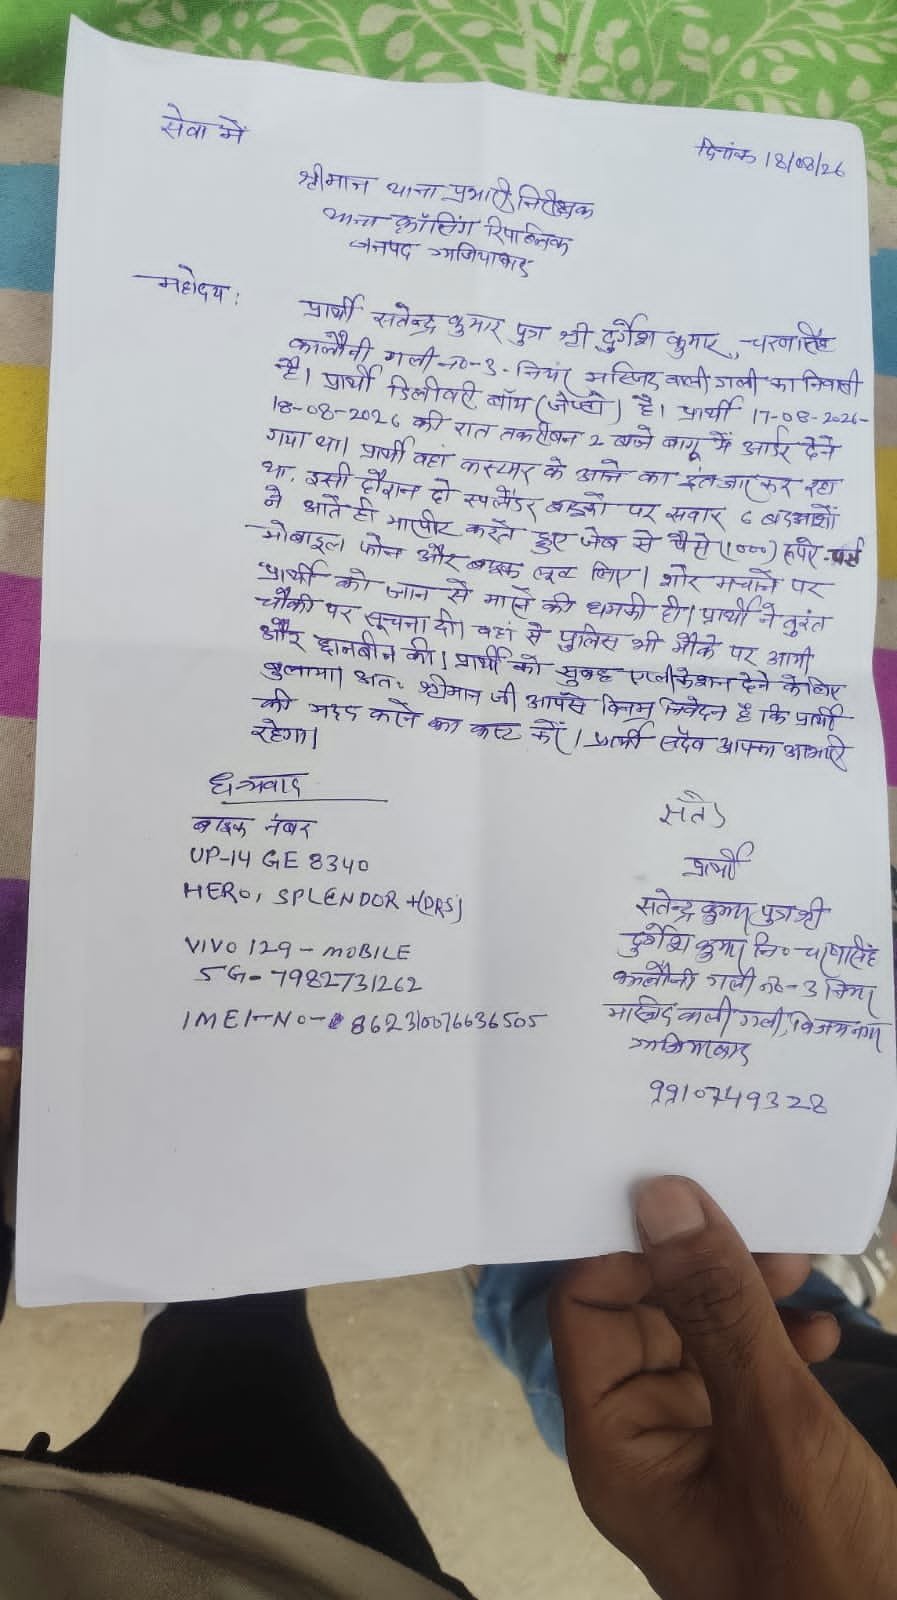 सेवा में
दिनांक 18/08/26
श्रीमान थाना प्रभारी निरीक्षक
थाना क्रॉसिंग रिपब्लिक
जनपद गाजियाबाद
महोदय:
प्रार्थी सतेन्द्र कुमार पुत्र श्री दुर्गेश कुमार, चरणसिंह
कालौनी गली-no-3. नियर मस्जिद वाली गली का निवासी
है। प्रार्थी डिलीवरी बॉय (जेप्टो) है। प्रार्थी 17-08-2026-
18-08-2026 की रात तकरीबन 2 बजे बागू में आर्डर देने
गया था। प्रार्थी वहां कस्टमर के आने का इंतजार कर रहा
था. इसी दौरान दो स्पलैंडर बाइको पर सवार 6 बदमाशों
ने आते ही मारपीट करते हुए जेब से पैसे (1000) रूपये पर्स
मोबाइल फोन और बाइक लूट लिए। शोर मचाने पर
प्रार्थी को जान से मारने की धमकी दी। प्रार्थी ने तुरंत
चौकी पर सूचना दी। वहां से पुलिस भी मौके पर आयी
और छानबीन की। प्रार्थी को सुबह एप्लीकेशन देने के लिए
बुलाया। अतः श्रीमान जी आपसे विनम्र निवेदन है कि प्रार्थी
की मदद करने का कष्ट करें। प्रार्थी सदैव आपका आभारी
रहेगा।
धन्यवाद
बाइक नंबर
UP-14 GE 8340
HERO, SPLENDOR +(DRS)
VIVO 129 - MOBILE
5G- 7982731262
IMEI-NO- 862310076636505
प्रार्थी
सतेन्द्र कुमार पुत्र श्री
दुर्गेश कुमार नि० चरणसिंह
कालौनी गली no-3 नियर
मस्जिद वाली गली, विजयनगर
गाजियाबाद
९९10749328